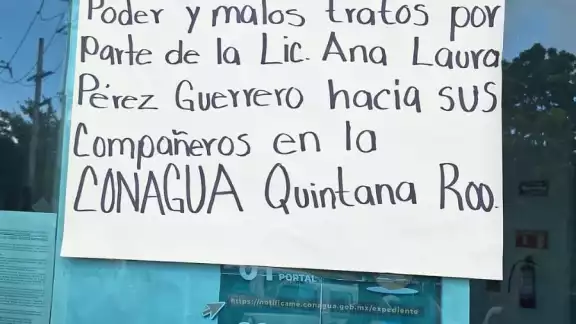 Poder y malos tratos por
parte de la Lic. Ana Laura
Pérez Guerrero hacia sus
Compañeros en la
CONAGUA Quintana Roo.
PORTAL
https://notificame.conagua.gob.mx/expediente